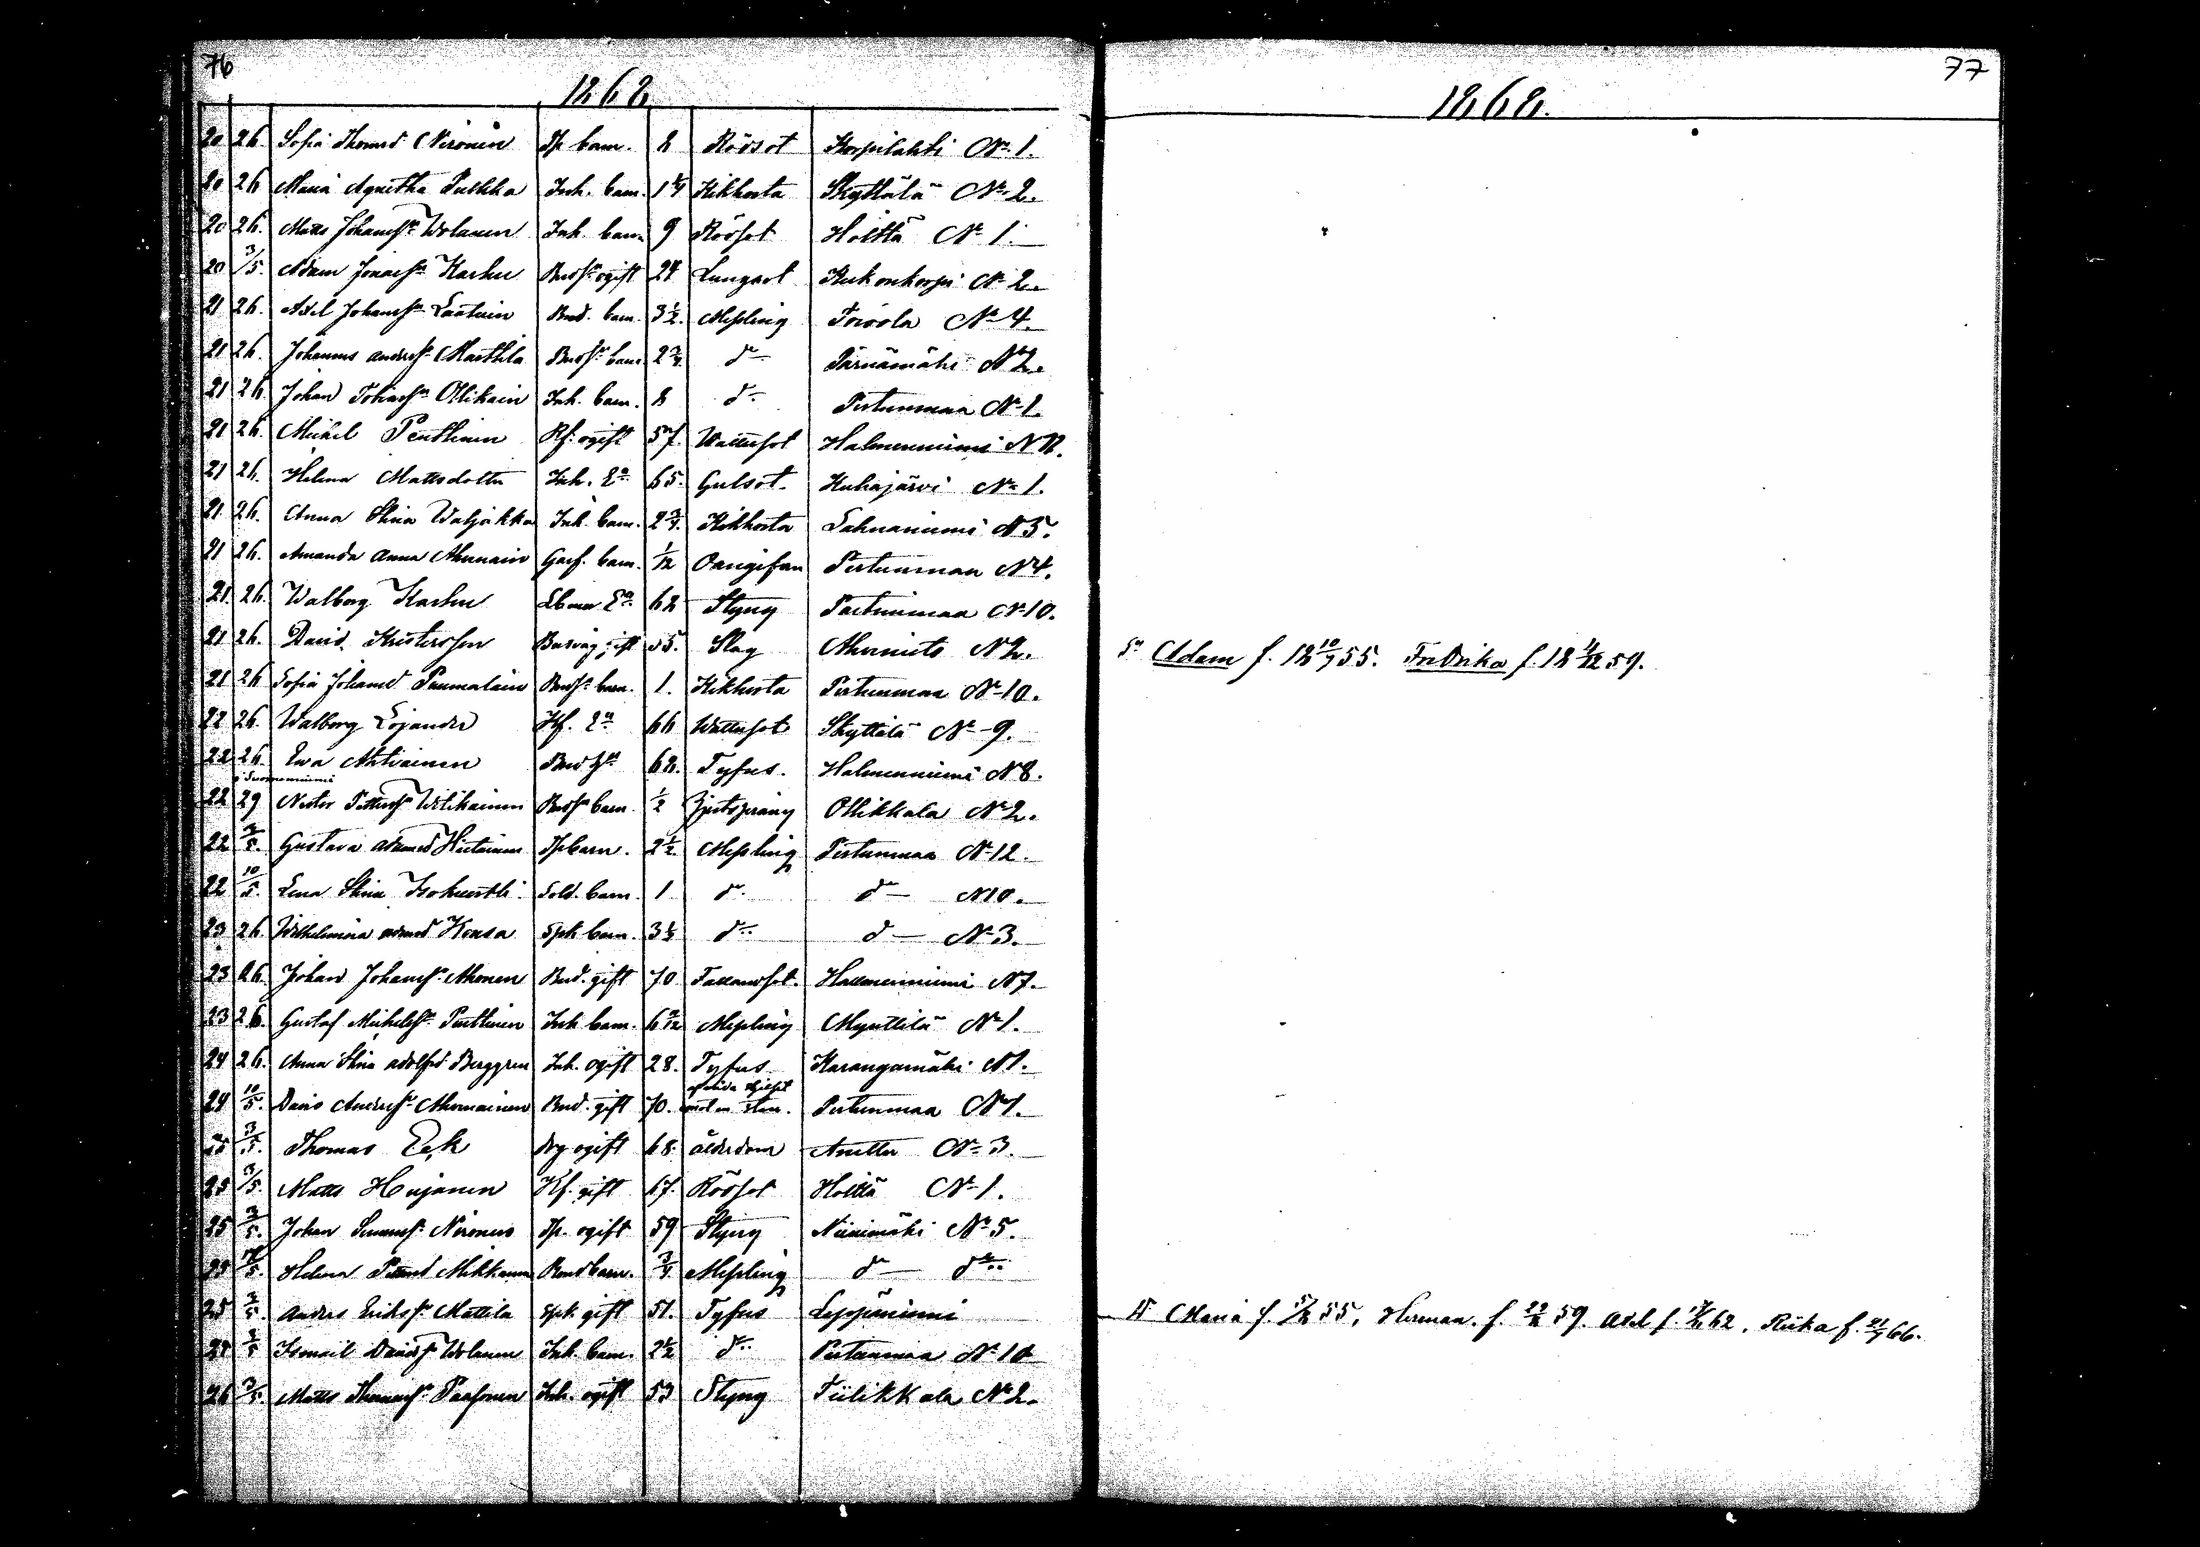 76
1868
20 26. Sofia Thomasd Nironen Tp barn. 8 Rödsot Korpilahti No 1.
20 26 Maria Agnetha Pulkka Inh. barn. 1 1/4 Kikhosta Skyttälä No 2.
20 26. Matts Johanss. Wolanen Inh. barn 9 Rödsot Holttä No 1.
20 3/5. Adam Jonass. Karhu Bndss. ogift 24 Lungsot Kukonkorpi No 2.
21 26. Axel Johanss. Laatuin Bnd. barn. 3 1/2. Messling Toivola No 4.
21 26. Johannes Anderss. Marttila Bndss. barn 2 3/4. do Pärnämäki No 2.
21 26. Johan Tobiass. Ollikain Inh. barn. 8 do Pertunmaa No 1.
21 26. Michel Penttinen Rf. ogift 57. Wattusot Halmenniemi No
21 26. Helena Mattsdotter Inh. Ea 65. Gulsot. Kuhajärvi No 1.
21 26. Anna Stina Waljakka Inh. barn. 2 3/4. Kikhosta Lahnaniemi No 5.
21 26. Amanda Anna Ahonain barn. 1/12 Oangifven Pertunmaa No 4.
21. 26. Walborg Karhu Ea 62 Styng Pertunmaa No 10.
21 26. David Kristersson gift 55. Slag No 2.
21 26 Sofia Johansd Paumalain Bndss. barn. 1. Kikhosta Pertunmaa No 10.
22 26. Walborg Lojander Kf. Ea 66 Wattusot Skyttälä No 9.
22 26. Ewa Ahtiainen Bnd 62. Tyfus. Halmenniemi No 8.
22 29 Nestor Petterss. Wilikainen Bndss barn. 1/2 Ollikkala No 2.
22 5. Gustava Hietainen Tp barn. 2 1/2. Messling Pertunmaa No 12.
22 10/5. Lena Stina Sold. barn. 1 do do No 10.
23 26. Wilhelmina Konsa Spk barn. 3 1/2 do do No 3.
23 26. Johan Johanss. Ahonen Bnd. gift 70 Fallandsot. Halmenniemi No 7.
23 26. Gustaf Michelss. Penttinen Inh barn. 6 Messling Mynttilä No 1.
24 26. Anna Stina Adolfsd Berggren Inh. ogift 28. Tyfus Karangamäki No 1.
24 10/5. David Anderss. Ahonainen Bnd. gift 70. Pertunmaa No 1.
25 3/5. Thomas Eek ogift 68. ålderdom No 3.
25 3/5. Matts Hujanen Kf. gift 67. Rödsot Holttä No 1.
25 3/5. Johan Nironen Tp. ogift 59 Styng Niinimäki No 5.
25 5. Helena Mikkonen Bnd barn. 3/4 Messling do do
25 3/5 Anders Erikss. Mattila Spk gift 51. Tyfus Leppäniemi
25 3/5 Ismael Davidss. Wolanen Inh. barn. 2 1/2 do Pertunmaa No 10
26 3/5. Matts Thomass. Paasonen Inh. ogift 53 Styng Tiilikkala No 2.
77
1868.
Adam f. 18 10/7 55. Fredrika f. 18 59.
Maria f. 55, Herman. f. 59. Axel f. 62, Riika f. 21/9 66.